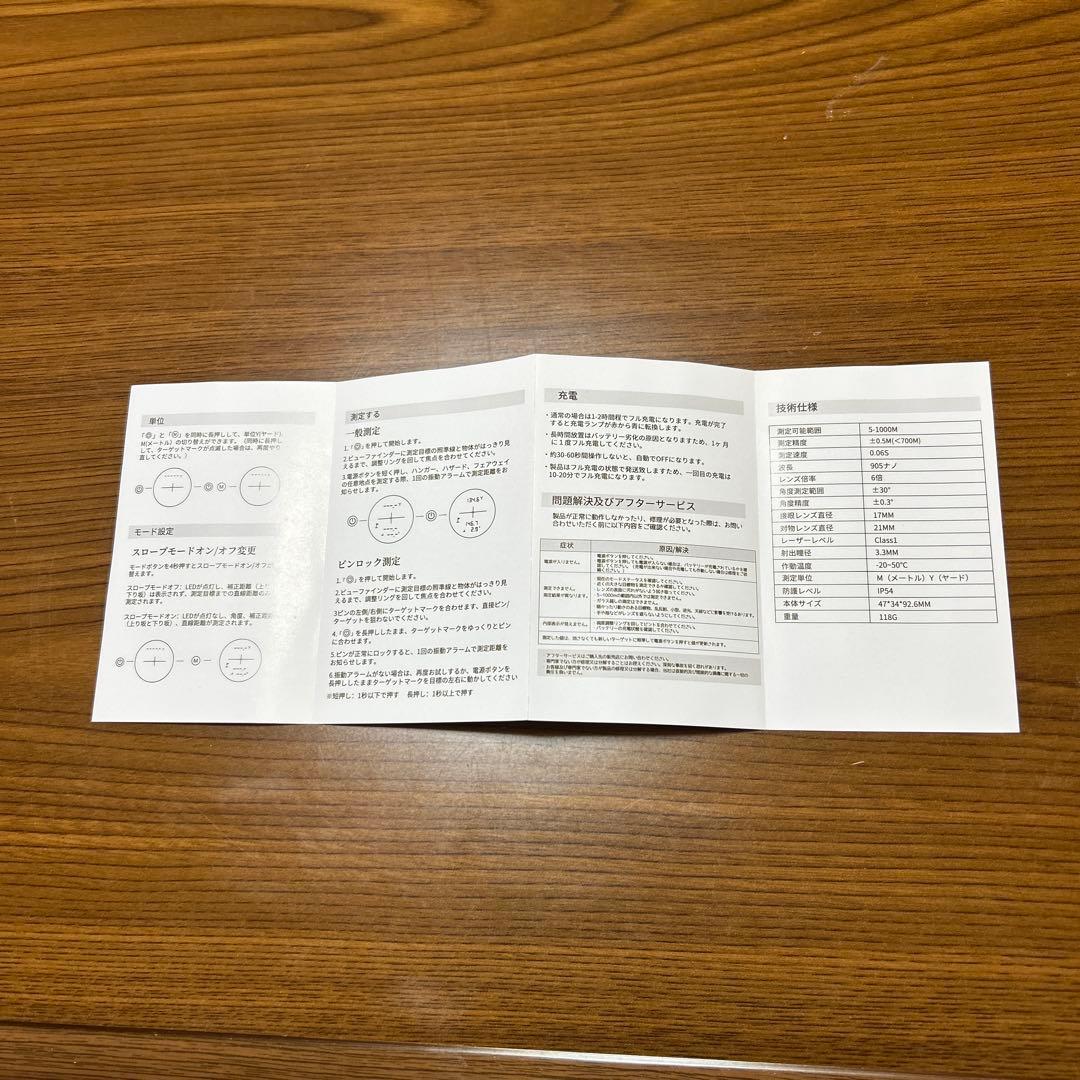 単位
「◎」と「Ⓜ」を同時に長押しして、単位Y(ヤード)、
M(メートル）の切り替えができます。（同時に長押し
して、ターゲットマークが点滅した場合は、再度やり
直してください。）
M
モード設定
スロープモードオン/オフ変更
モードボタンを4秒押すとスロープモードオン/オフが
替えます。
スロープモードオフ：LEDが点灯し、補正距離（上り
下り坂）は表示されず、測定目標までの直線距離のみ
測定されます。
スロープモードオン：LEDが点灯なし、角度、補正距
（上り坂と下り坂）、直線距離が測定されます。
M
測定する
一般測定
1.「◎」を押して開始します。
2.ビューファインダーに測定目標の照準線と物体がはっきり見
えるまで、調整リングを回して焦点を合わせてください。
3.電源ボタンを短く押し、ハンガー、ハザード、フェアウェイ
の任意地点を測定する際、1回の振動アラームで測定距離をお
知らせします。
134.6Y
146.7
2.9°
ピンロック測定
1.「◎」を押して開始します。
2.ビューファインダーに測定目標の照準線と物体がはっきり見
えるまで、調整リングを回して焦点を合わせてください。
3ピンの左側/右側にターゲットマークを合わせます、直接ピン/
ターゲットを狙わないでください。
4.「◎」を長押ししたまま、ターゲットマークをゆっくりとピン
に合わせます。
5.ピンが正常にロックすると、1回の振動アラームで測定距離を
お知らせします。
6.振動アラームがない場合は、再度お試しするか、電源ボタンを
長押ししたままターゲットマークを目標の左右に動かしてください
※短押し：1秒以下で押す　長押し：1秒以上で押す
充電
・通常の場合は1-2時間程でフル充電になります。充電が完了
すると充電ランプが赤から青に転換します。
・長時間放置はバッテリー劣化の原因となりますため、1ヶ月
に１度フル充電してください。
・約30-60秒間操作しないと、自動でOFFになります。
・製品はフル充電の状態で発送致しますため、一回目の充電は
10-20分でフル充電になります。
問題解決及びアフターサービス
製品が正常に動作しなかったり、修理が必要となった際は、お問い
合わせいただく前に以下内容をご確認ください。
症状 原因/解決
電源が入りません。 電源ボタンを押してください。
測定できません。
測定結果が異なります。
現在のモードステータスを確認してください。
内部表示が見えません。 視度調整リングを回してピントを合わせてください。
バッテリーの充電状態を確認してください。
アフターサービスはご購入先の販売店にお問い合わせください。
技術仕様
測定可能範囲 5-1000M
測定精度 ±0.5M(＜700M)
測定速度 0.06S
波長 905ナノ
レンズ倍率 6倍
角度測定範囲 ±30°
角度精度 ±0.3°
接眼レンズ直径 17MM
対物レンズ直径 21MM
レーザーレベル Class1
射出瞳径 3.3MM
作動温度 -20~50℃
測定単位 M（メートル）Y（ヤード）
防護レベル IP54
本体サイズ 47*34*92.6MM
重量 118G